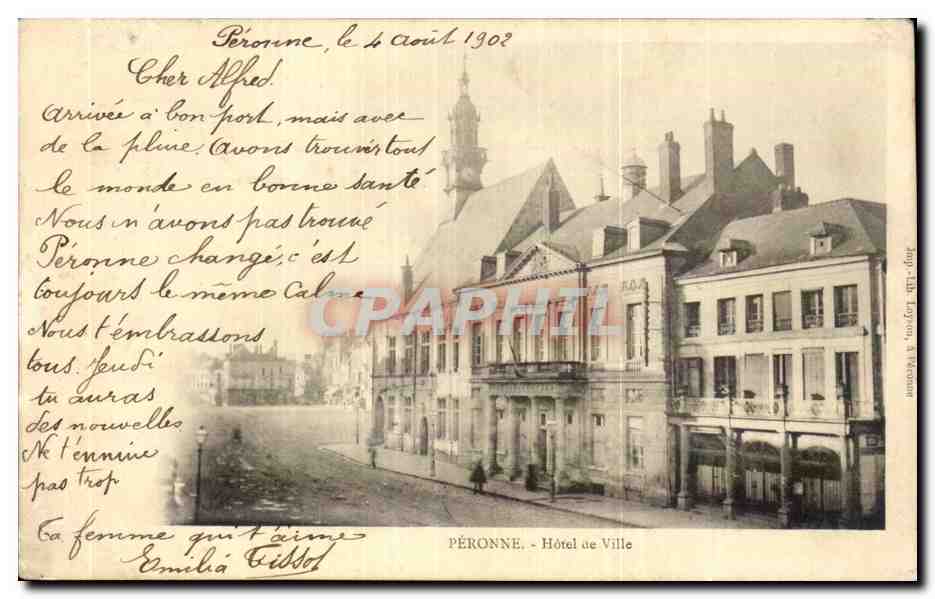 Péronne, le 4 août 1902
Cher Alfred.
Arrivée à bon port, mais avec
de la pluie. Avons trouvés tout
le monde en bonne santé.
Nous n'avons pas trouvé
Péronne changé, c'est
toujours le même calme
Nous t'embrassons
tous. Jeudi
tu auras
des nouvelles
Ne t'ennuie
pas trop
Ta femme qui t'aime
Emilia Tissot
CPARAMA
PÉRONNE. - Hôtel de Ville
Imp.-Lith. Loyson, à Péronne